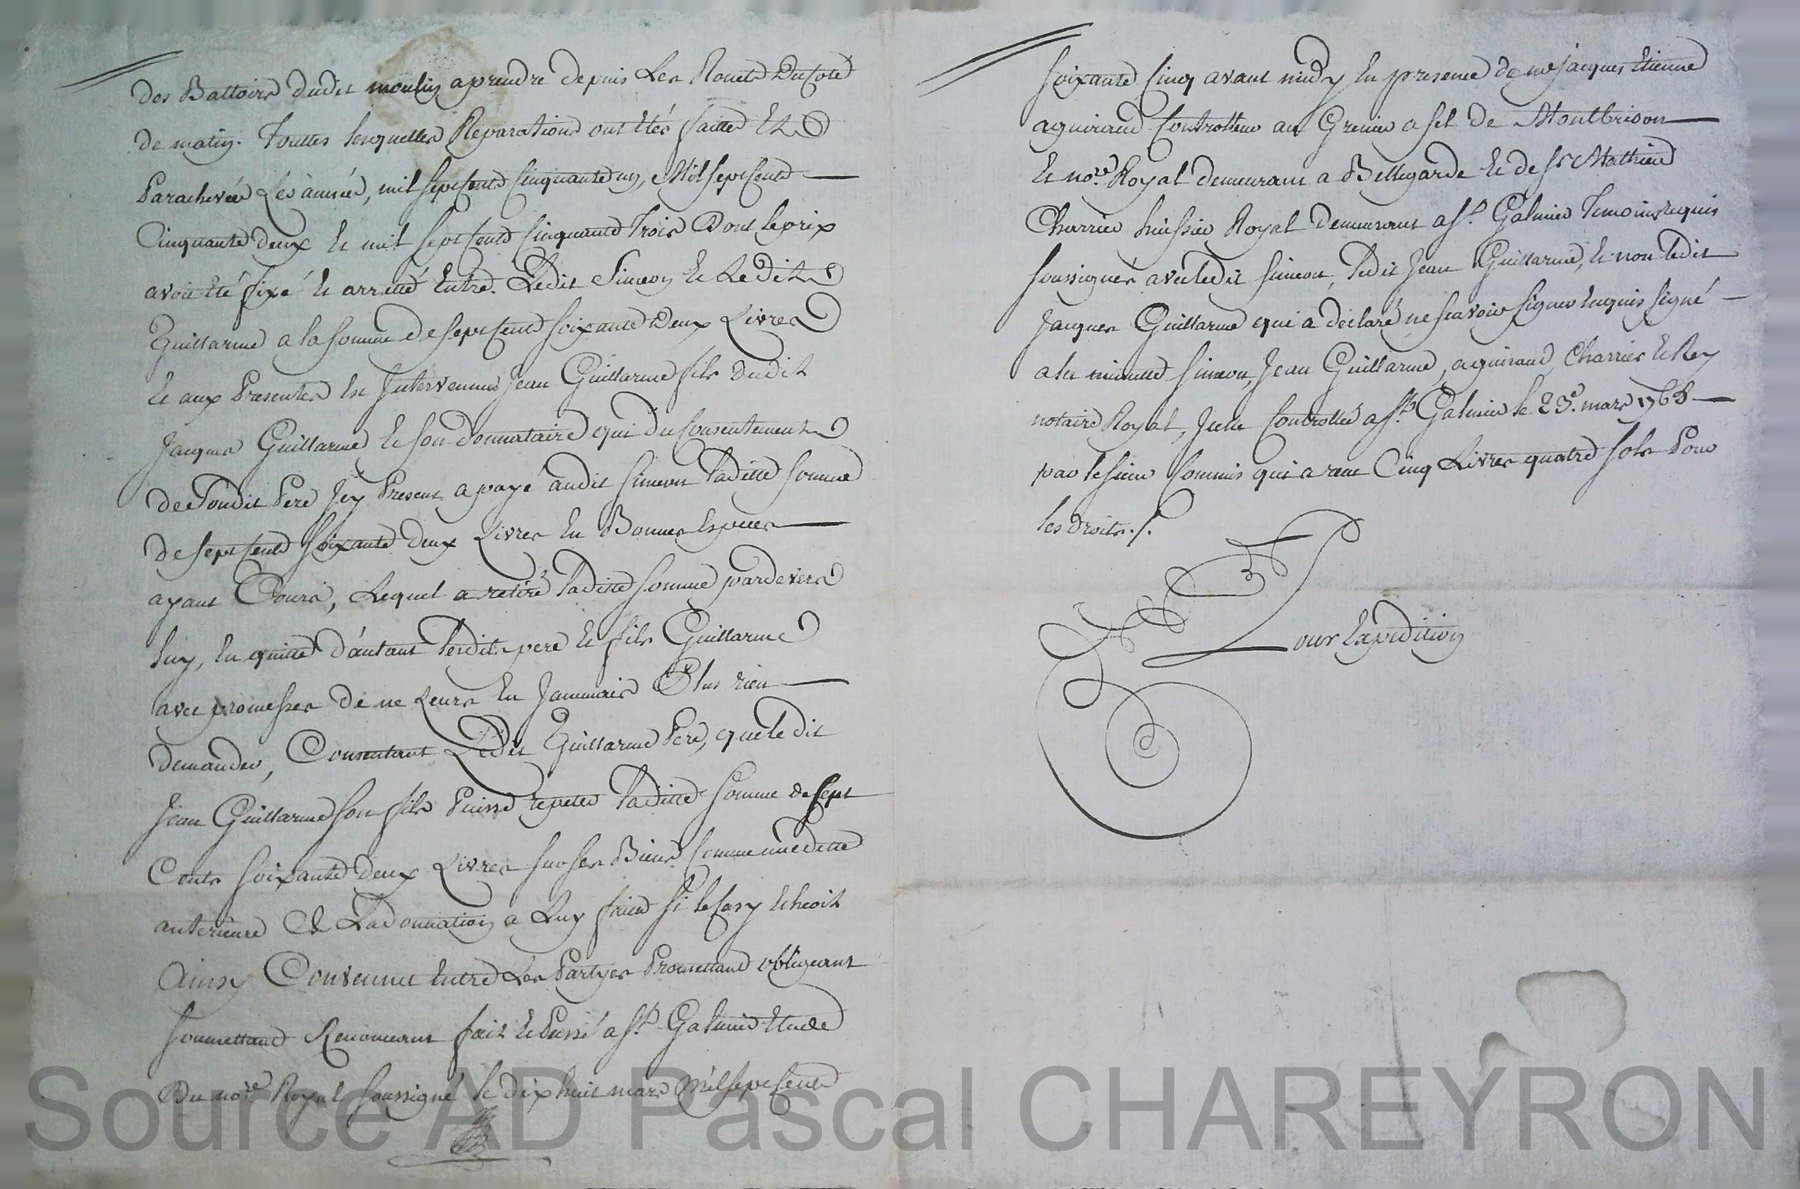 des Battoirs dudit moulin aprendre depuis Les Rouets Ducoté
de matin. Touttes lesquelles Reparations ont étés faittes Et
Parachevée Les année, mil septcents Cinquante un, Mil septcents
Cinquante deux et mil septcents Cinquante trois Dont le prix
avoit été fixé et arretté Entre Ledit Simeon Et Ledit
Guillarme a la somme de septcents soixante Deux Livres
Et aux Presentes Est Intervenus Jean Guillarme fils dudit
Jacques Guillarme et son donnataire qui du Consentement
de sondit Pere Icy Present a payé audit Simeon laditte somme
de sept cents soixante deux Livres En Bonnes Especes
ayant Cours, Lequel a retiré laditte somme pardevers
luy, En quitte d'autant lesdits pere et fils Guillarme
avec promesses de ne Leurs En Jammais Plus rien
demander, Consentant Ledit Guillarme Pere, que ledit
Jean Guillarme son fils Puisse repeter laditte somme de sept
Cents soixante deux Livres sur ses Biens Comme une dette
anterieure à La donnation a Luy faite si le Cas y Echeoit
Ainsy Convenut Entre Les Partyes Promettant obligeant
soumettant Renonceant fait et Passé a St. Galmier Etude
Du nore. Royal soussigné le dix huit mars Mil sept cents
soixante Cinq avant midy En presence de me Jacques Etienne
aguiraud Controlleur au Grenier a sel de Montbrison
Et nore. Royal demeurant a Bellegarde Et de sr Mathieu
Charrier huissier Royal demeurant a St. Galmier Temoins requis
soussignés avec ledit simeon, ledit Jean Guillarme, et non ledit
Jacques Guillarme qui a déclaré ne scavoir signer Enquis signé
a la minutte simeon, Jean Guillarme, aguiraud, Charrier et Rey
notaire Royal, Icelle Controllée a St. Galmier le 23e. mars 1765
par le sieur Commis qui a recu Cinq Livres quatre sols Pour
les droits ./.
Pour Expedition
Source AD Pascal CHAREYRON